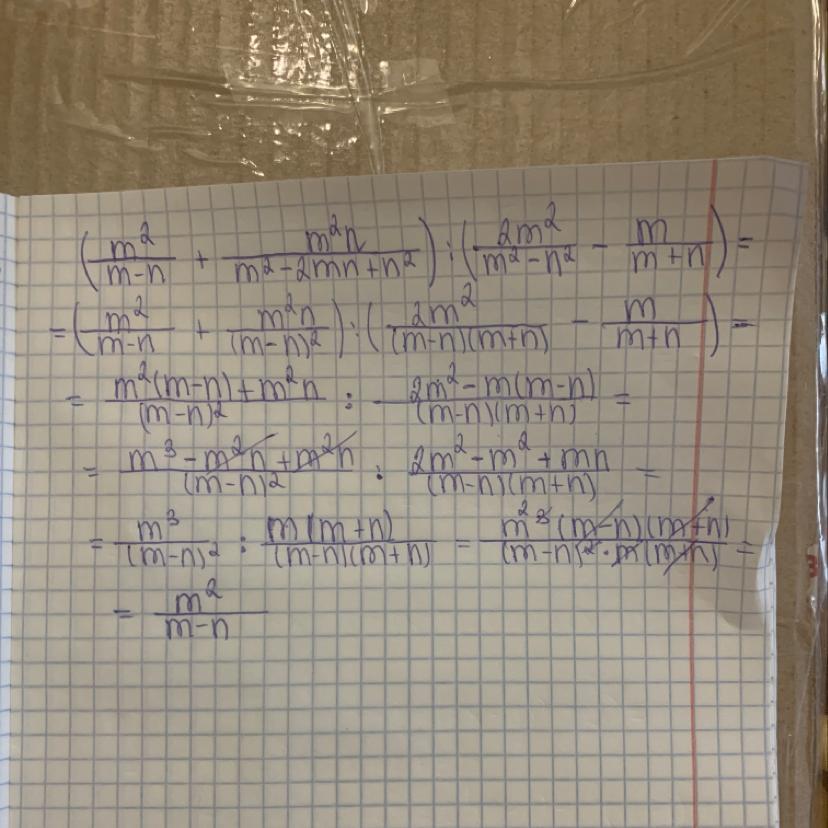 (m²/(m-n) + m²n/(m²-2mn+n²)) : (2m²/(m²-n²) - m/(m+n)) =
= (m²/(m-n) + m²n/(m-n)²) : (2m²/((m-n)(m+n)) - m/(m+n)) =
= (m²(m-n)+m²n)/(m-n)² : (2m²-m(m-n))/((m-n)(m+n)) =
= (m³-m²n+m²n)/(m-n)² : (2m²-m²+mn)/((m-n)(m+n)) =
= m³/(m-n)² : m(m+n)/((m-n)(m+n)) = m² ³(m-n)(m+n)/((m-n)²·m(m+n)) =
= m²/(m-n)